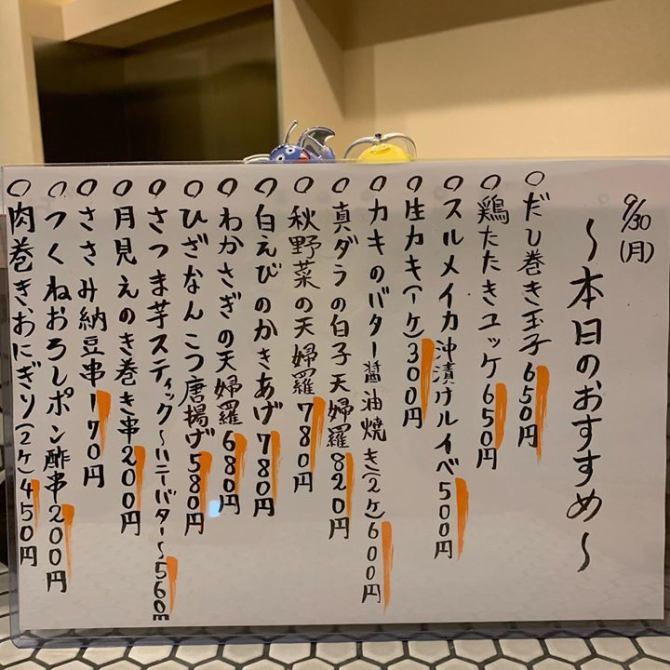 9/30(月)
〜本日のおすすめ〜
○だし巻き玉子650円
○鶏たたきユッケ650円
○スルメイカ沖漬けルイベ500円
○生カキ(1ケ)300円
○カキのバター醤油焼き(2ケ)600円
○真ダラの白子天婦羅820円
○秋野菜の天婦羅780円
○白えびのかきあげ780円
○わかさぎの天婦羅680円
○ひざなんこつ唐揚げ580円
○さつま芋スティック〜ハニーバター〜560円
○月見えのき巻き串200円
○ささみ納豆串170円
○つくねおろしポン酢串200円
○肉巻きおにぎり(2ケ)450円